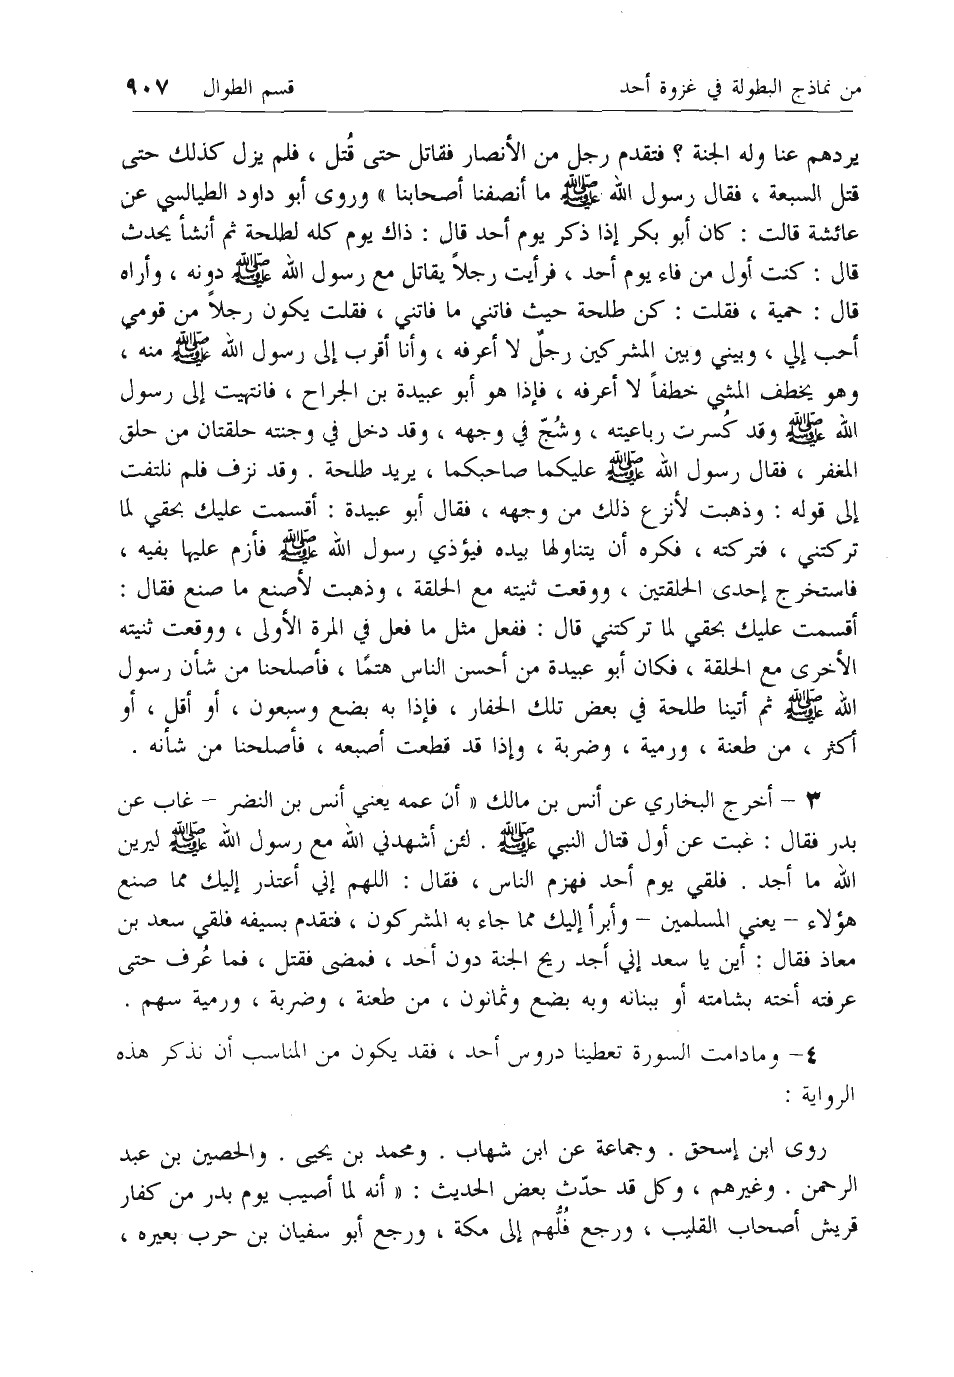 من نماذج البطولة في غزوة أحد قسم الطوال ٩٠٧
يردهم عنا وله الجنة ؟ فتقدم رجل من الأنصار فقاتل حتى قُتل ، فلم يزل كذلك حتى
قتل السبعة ، فقال رسول الله ﷺ ما أنصفنا أصحابنا » وروى أبو داود الطيالسي عن
عائشة قالت : كان أبو بكر إذا ذكر يوم أحد قال : ذاك يوم كله لطلحة ثم أنشأ يحدث
قال : كنت أول من فاء يوم أحد ، فرأيت رجلاً يقاتل مع رسول الله ﷺ دونه ، وأراه
قال : حمية ، فقلت : كن طلحة حيث فاتني ما فاتني ، فقلت يكون رجلاً من قومي
أحب إلي ، وبيني وبين المشركين رجلٌ لا أعرفه ، وأنا أقرب إلى رسول الله ﷺ منه ،
وهو يخطف المشي خطفاً لا أعرفه ، فإذا هو أبو عبيدة بن الجراح ، فانتهيت إلى رسول
الله ﷺ وقد كُسرت رباعيته ، وشُجّ في وجهه ، وقد دخل في وجنته حلقتان من حلق
المغفر ، فقال رسول الله ﷺ عليكما صاحبكما ، يريد طلحة . وقد نزف فلم نلتفت
إلى قوله : وذهبت لأنزع ذلك من وجهه ، فقال أبو عبيدة : أقسمت عليك بحقي لما
تركتني ، فتركته ، فكره أن يتناولها بيده فيؤذي رسول الله ﷺ فأزم عليها بفيه ،
فاستخرج إحدى الحلقتين ، ووقعت ثنيته مع الحلقة ، وذهبت لأصنع ما صنع فقال :
أقسمت عليك بحقي لما تركتني قال : ففعل مثل ما فعل في المرة الأولى ، ووقعت ثنيته
الأخرى مع الحلقة ، فكان أبو عبيدة من أحسن الناس هتمًا ، فأصلحنا من شأن رسول
الله ﷺ ثم أتينا طلحة في بعض تلك الحفار ، فإذا به بضع وسبعون ، أو أقل ، أو
أكثر ، من طعنة ، ورمية ، وضربة ، وإذا قد قطعت أصبعه ، فأصلحنا من شأنه .
٣ – أخرج البخاري عن أنس بن مالك « أن عمه يعني أنس بن النضر – غاب عن
بدر فقال : غبت عن أول قتال النبي ﷺ . لئن أشهدني الله مع رسول الله ﷺ ليرين
الله ما أجد . فلقي يوم أحد فهزم الناس ، فقال : اللهم إني أعتذر إليك مما صنع
هؤلاء – يعني المسلمين – وأبرأ إليك مما جاء به المشركون ، فتقدم بسيفه فلقي سعد بن
معاذ فقال : أين يا سعد إني أجد ريح الجنة دون أحد ، فمضى فقتل ، فما عُرف حتى
عرفته أخته بشامته أو ببنانه وبه بضع وثمانون ، من طعنة ، وضربة ، ورمية سهم .
٤ – ومادامت السورة تعطينا دروس أحد ، فقد يكون من المناسب أن نذكر هذه
الرواية :
روى ابن إسحق . وجماعة عن ابن شهاب . ومحمد بن يحيى . والحصين بن عبد
الرحمن . وغيرهم ، وكل قد حدّث بعض الحديث : « أنه لما أصيب يوم بدر من كفار
قريش أصحاب القليب ، ورجع فُلُّهم إلى مكة ، ورجع أبو سفيان بن حرب بعيره ،